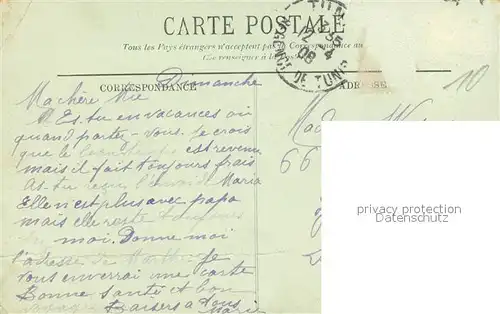 CARTE POSTALE
Tous les Pays étrangers n'acceptent pas la Correspondance au
se renseigner à la
CORRESPONDANCE
ADRESSE
TUNIS
12 35
4
08
DE TUNIS
10
Dimanche
Ma chère
Es. tu en vacances ou
quand partez-vous. Je crois
que le beau temps est revenu
mais il fait toujours frais
As-tu reçu l'envoi de Maria
Elle n'est plus avec papa
mais elle reste toujours
moi. Donne moi
l'adresse de Marthe. Je
vous enverrai une carte
Bonne santé et bon
Baisers à tous
Marie
66
privacy protection
Datenschutz